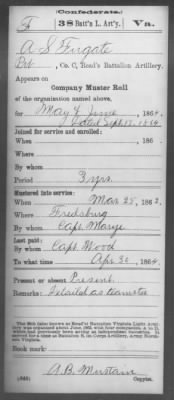 (Confederate.)
F 38 Batt'n L. Art'y. Va.
A S Fugate
Pvt, Co. C, Read's Battalion Artillery.
Appears on
Company Muster Roll
of the organization named above,
for May & June, 1864.
dated Sept. 12, 1864
Joined for service and enrolled:
When , 186 .
Where
By whom
Period 3 yrs.
Mustered into service:
When Mar 25, 1862.
Where Fredsburg
By whom Capt. Marye
Last paid:
By whom Capt. Wood
To what time Apr 30, 1864.
Present or absent Present
Remarks: Detailed as teamster
Book mark:
A. B. Mustain
(642) Copyist.